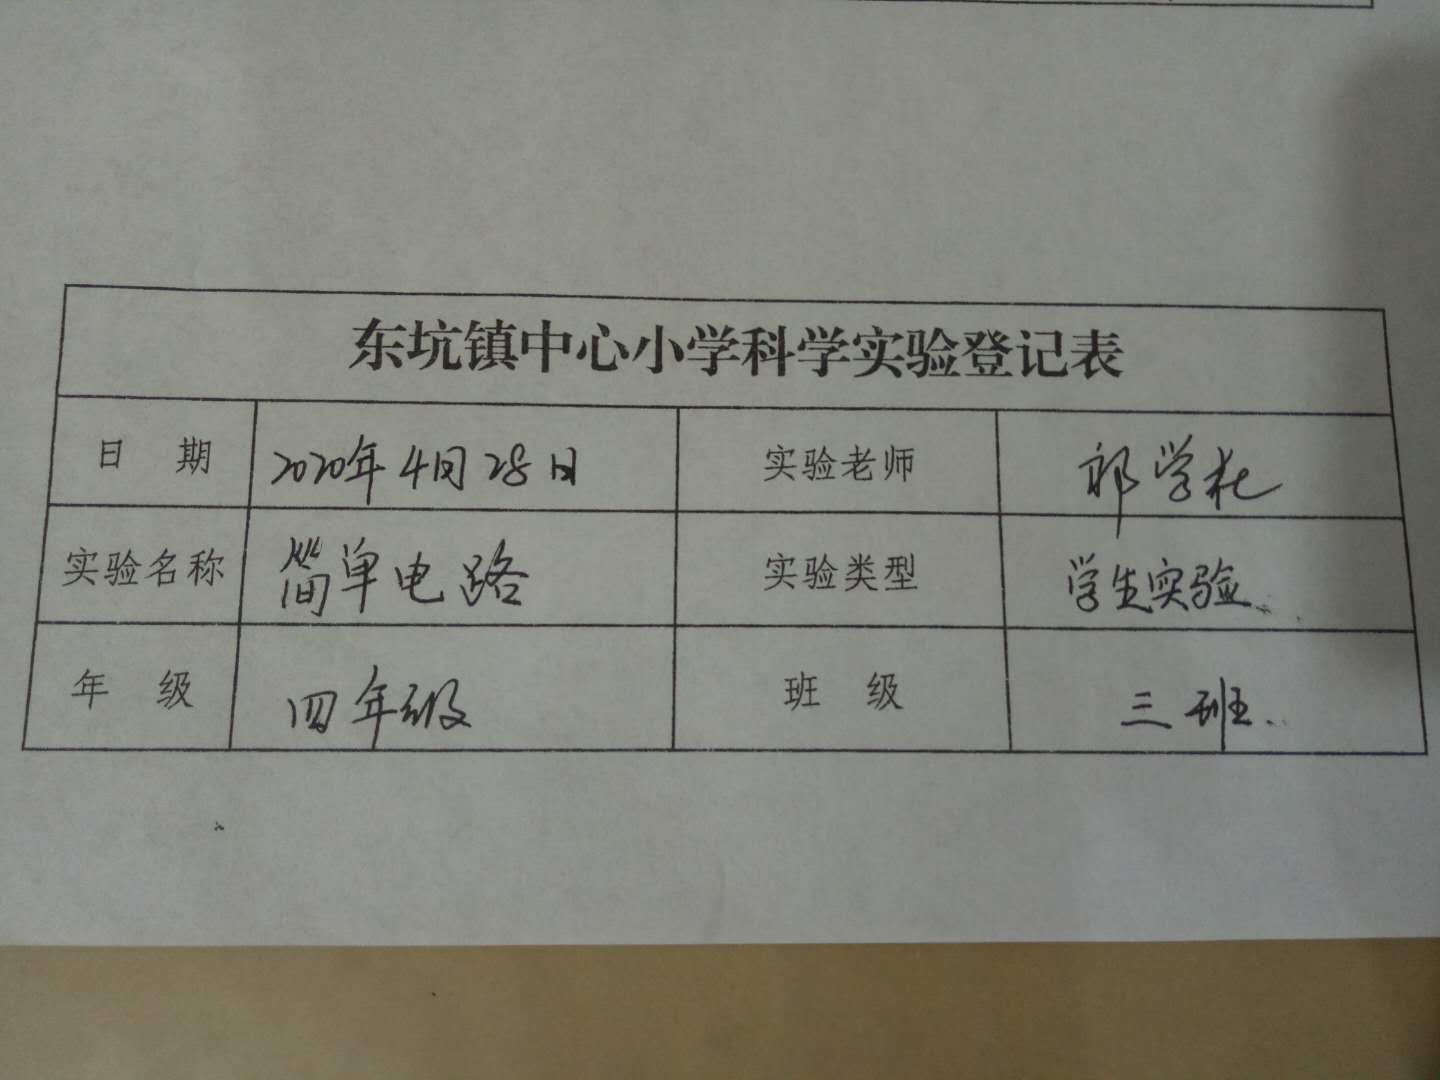 东坑镇中心小学科学实验登记表
日 期 2020年4月28日 实验老师 学
实验名称 简单电路 实验类型 学生实验
年 级 四年级 班 级 三班